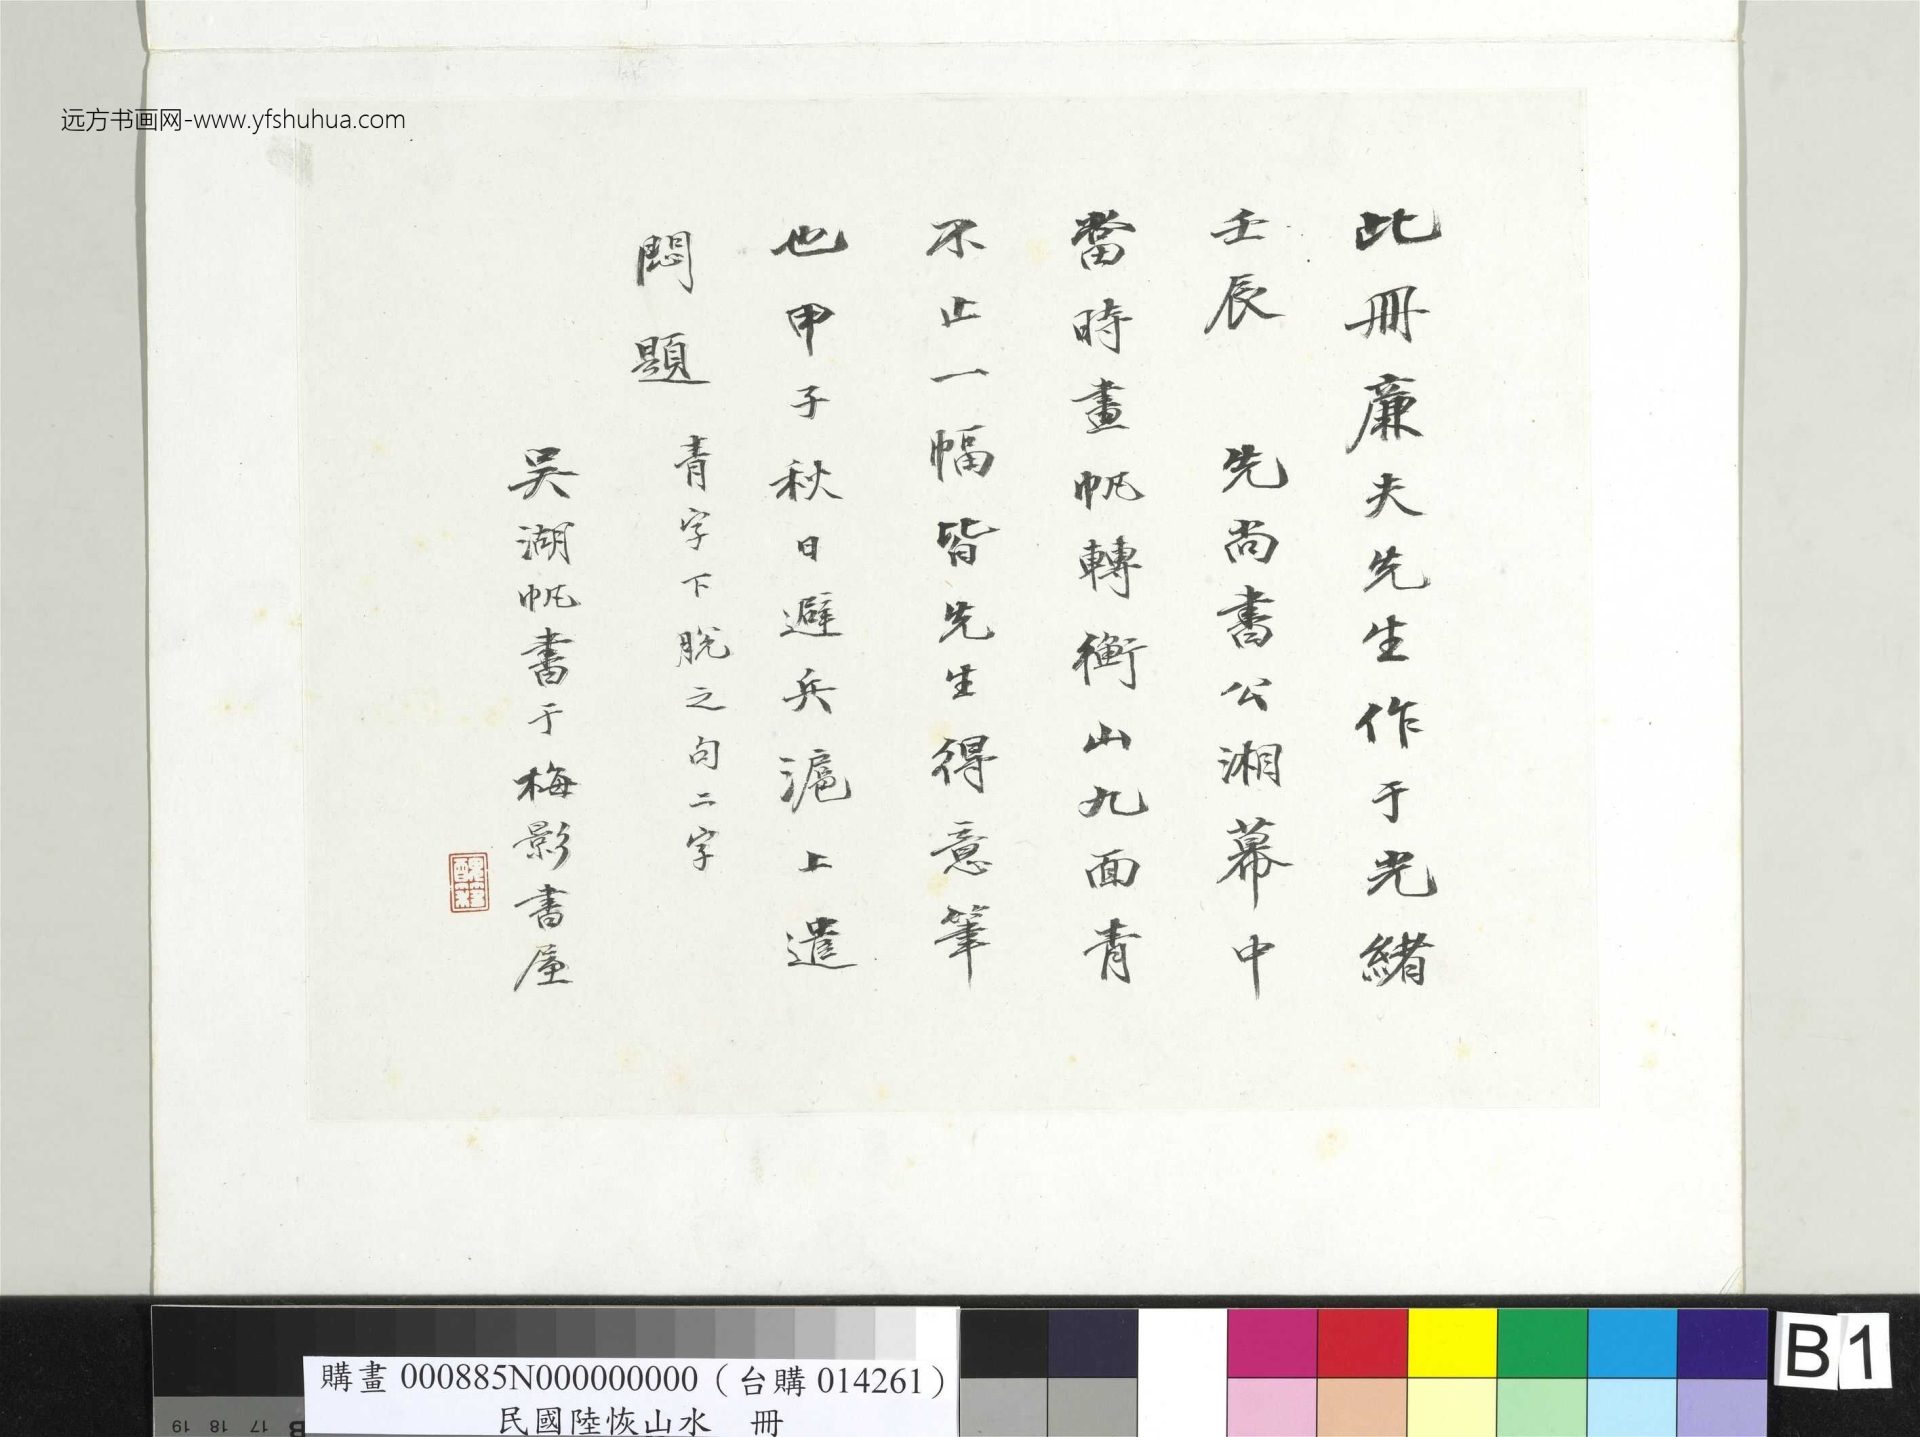 远方书画网-www.yfshuhua.com
此冊廉夫先生作于光緒
壬辰 先尚書公湘幕中
當時畫帆轉衡山九面青
不止一幅皆先生得意筆
也甲子秋日避兵滬上遣
悶題 青字下脫之句二字
吳湖帆書于梅影書屋
購畫 000885N000000000（台購 014261）
民國陸恢山水 冊
B1
19 18 17 B